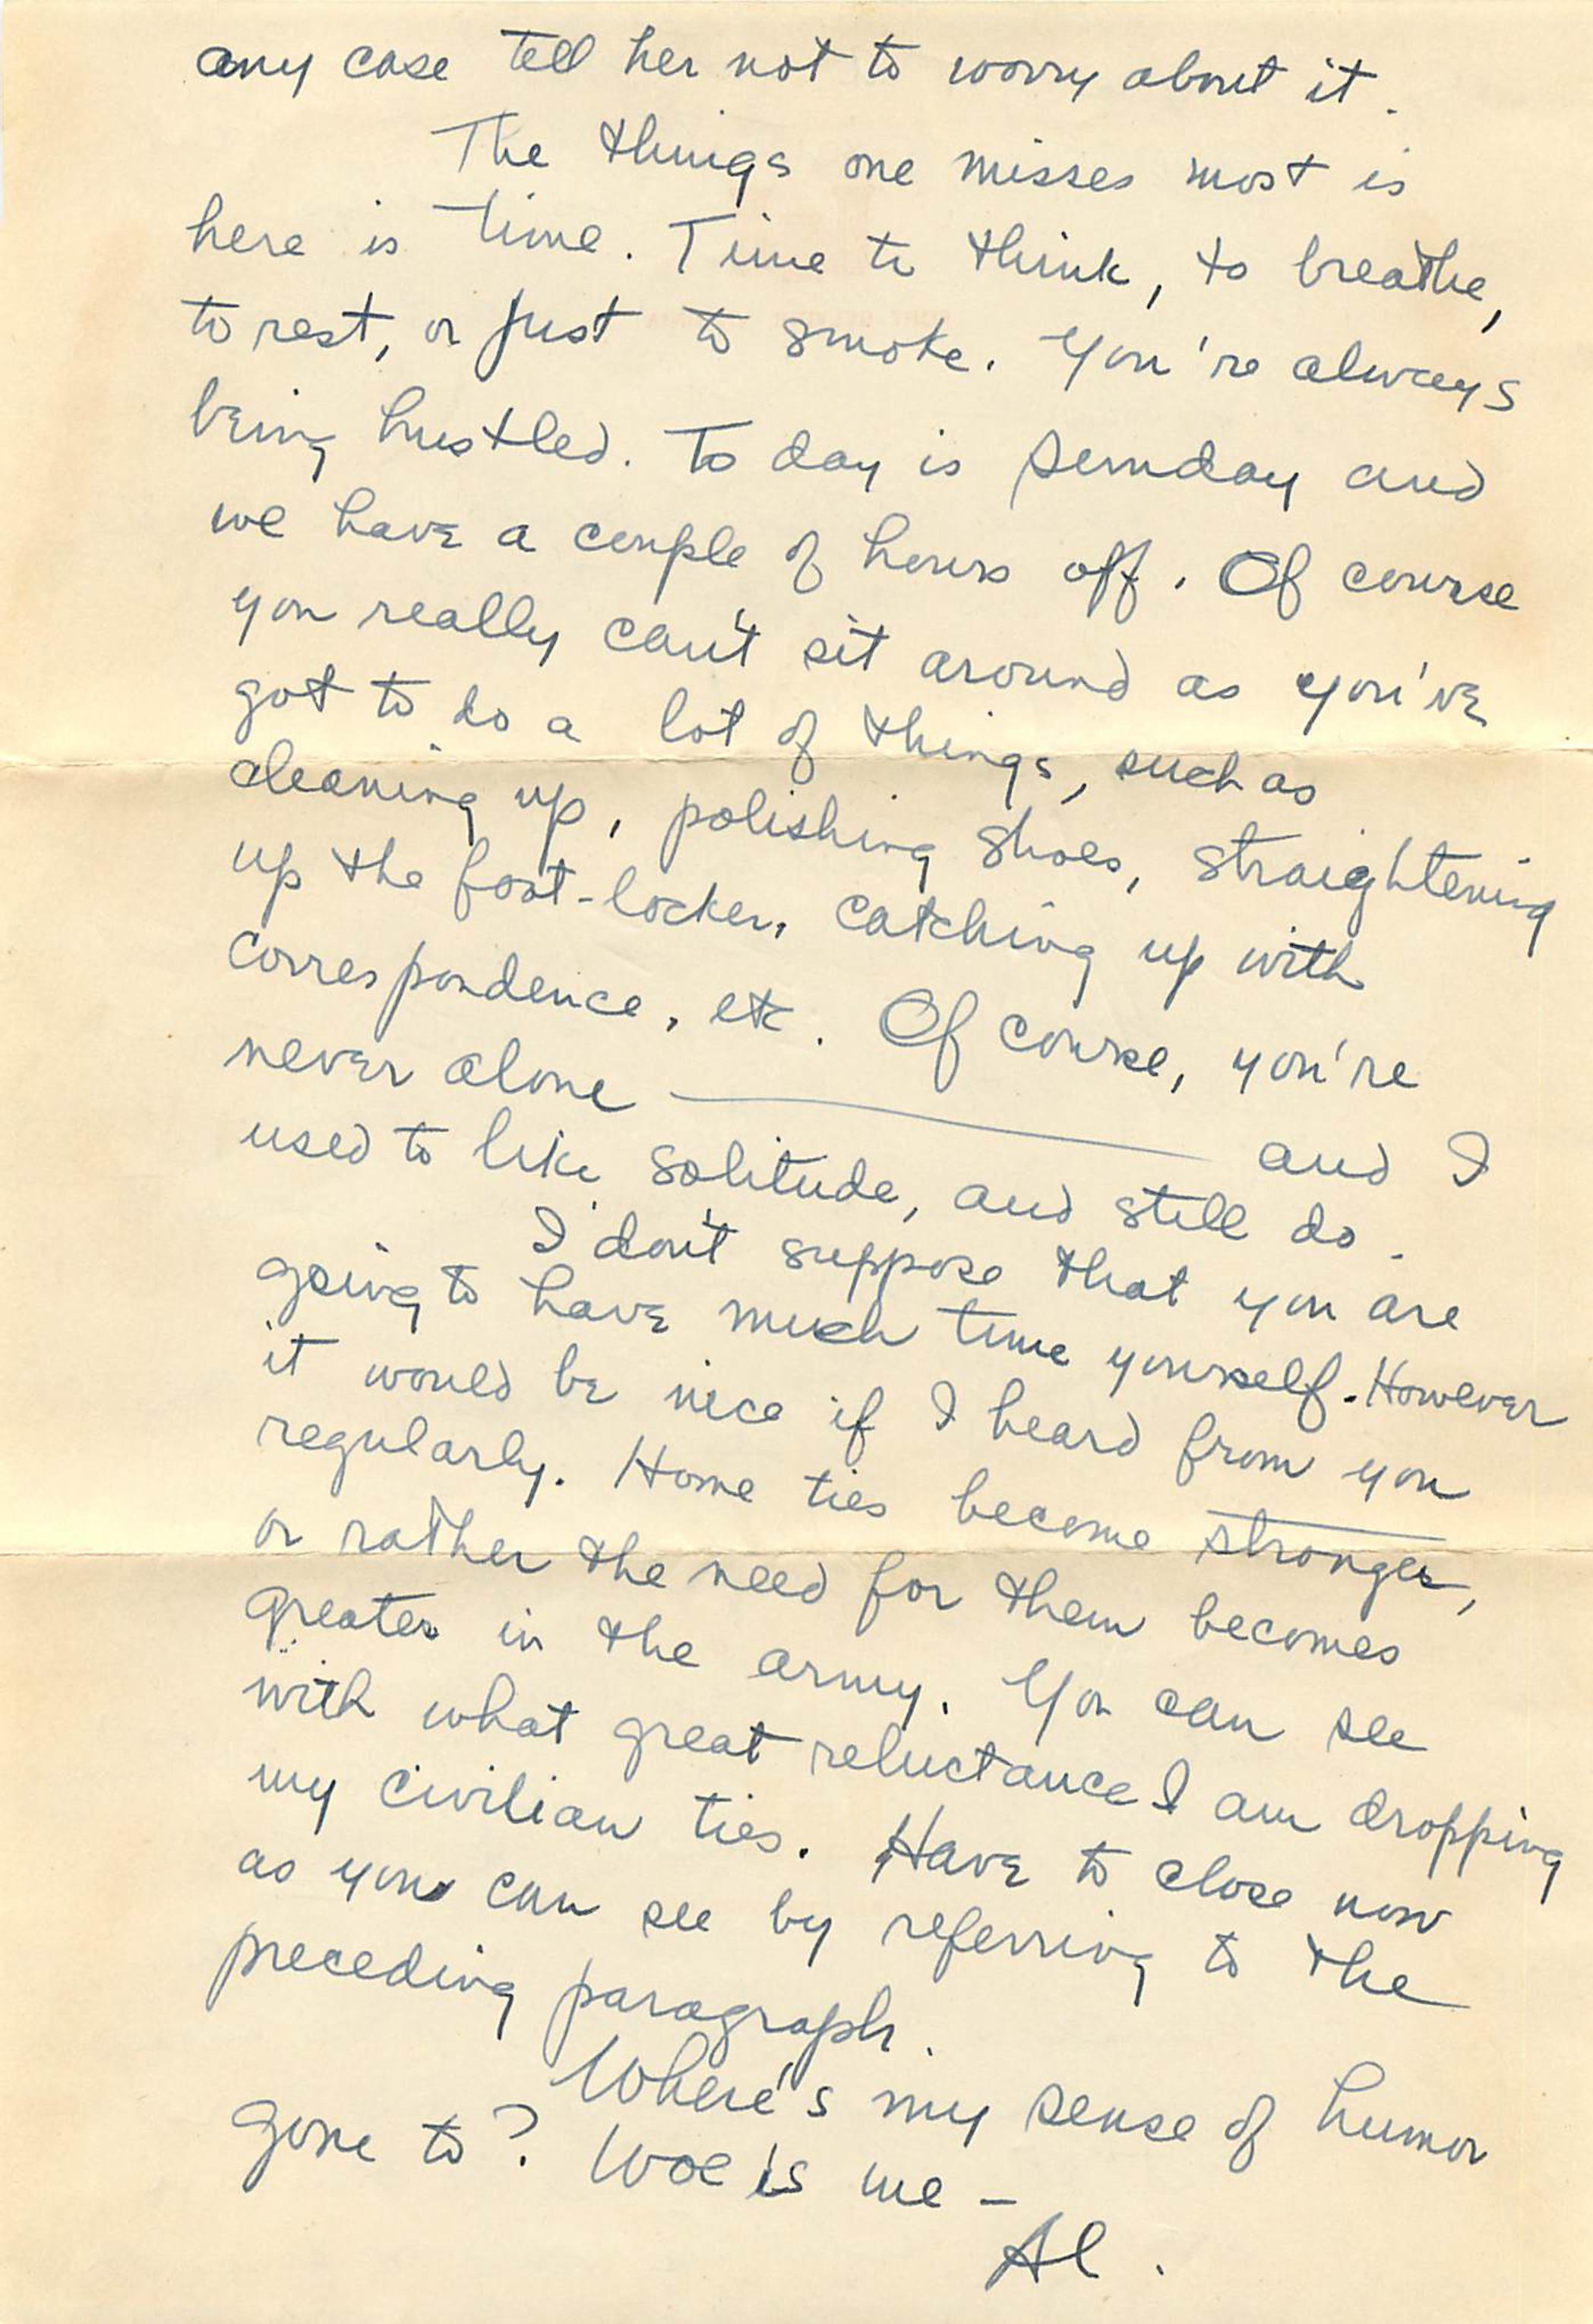 any case tell her not to worry about it.
The things one misses most is
here is time. Time to think, to breathe,
to rest, or just to smoke. You're always
being hustled. To day is Sunday and
we have a couple of hours off. Of course
you really can't sit around as you've
got to do a lot of things, such as
cleaning up, polishing shoes, straightening
up the foot-locker, catching up with
correspondence, etc. Of course, you're
never alone — and I
used to like solitude, and still do.
I don't suppose that you are
going to have much time yourself. However
it would be nice if I heard from you
regularly. Home ties become stronger,
or rather the need for them becomes
greater in the army. You can see
with what great reluctance I am dropping
my civilian ties. Have to close now
as you can see by referring to the
preceding paragraph.
Where's my sense of humor
gone to? Woe is me –
Al.